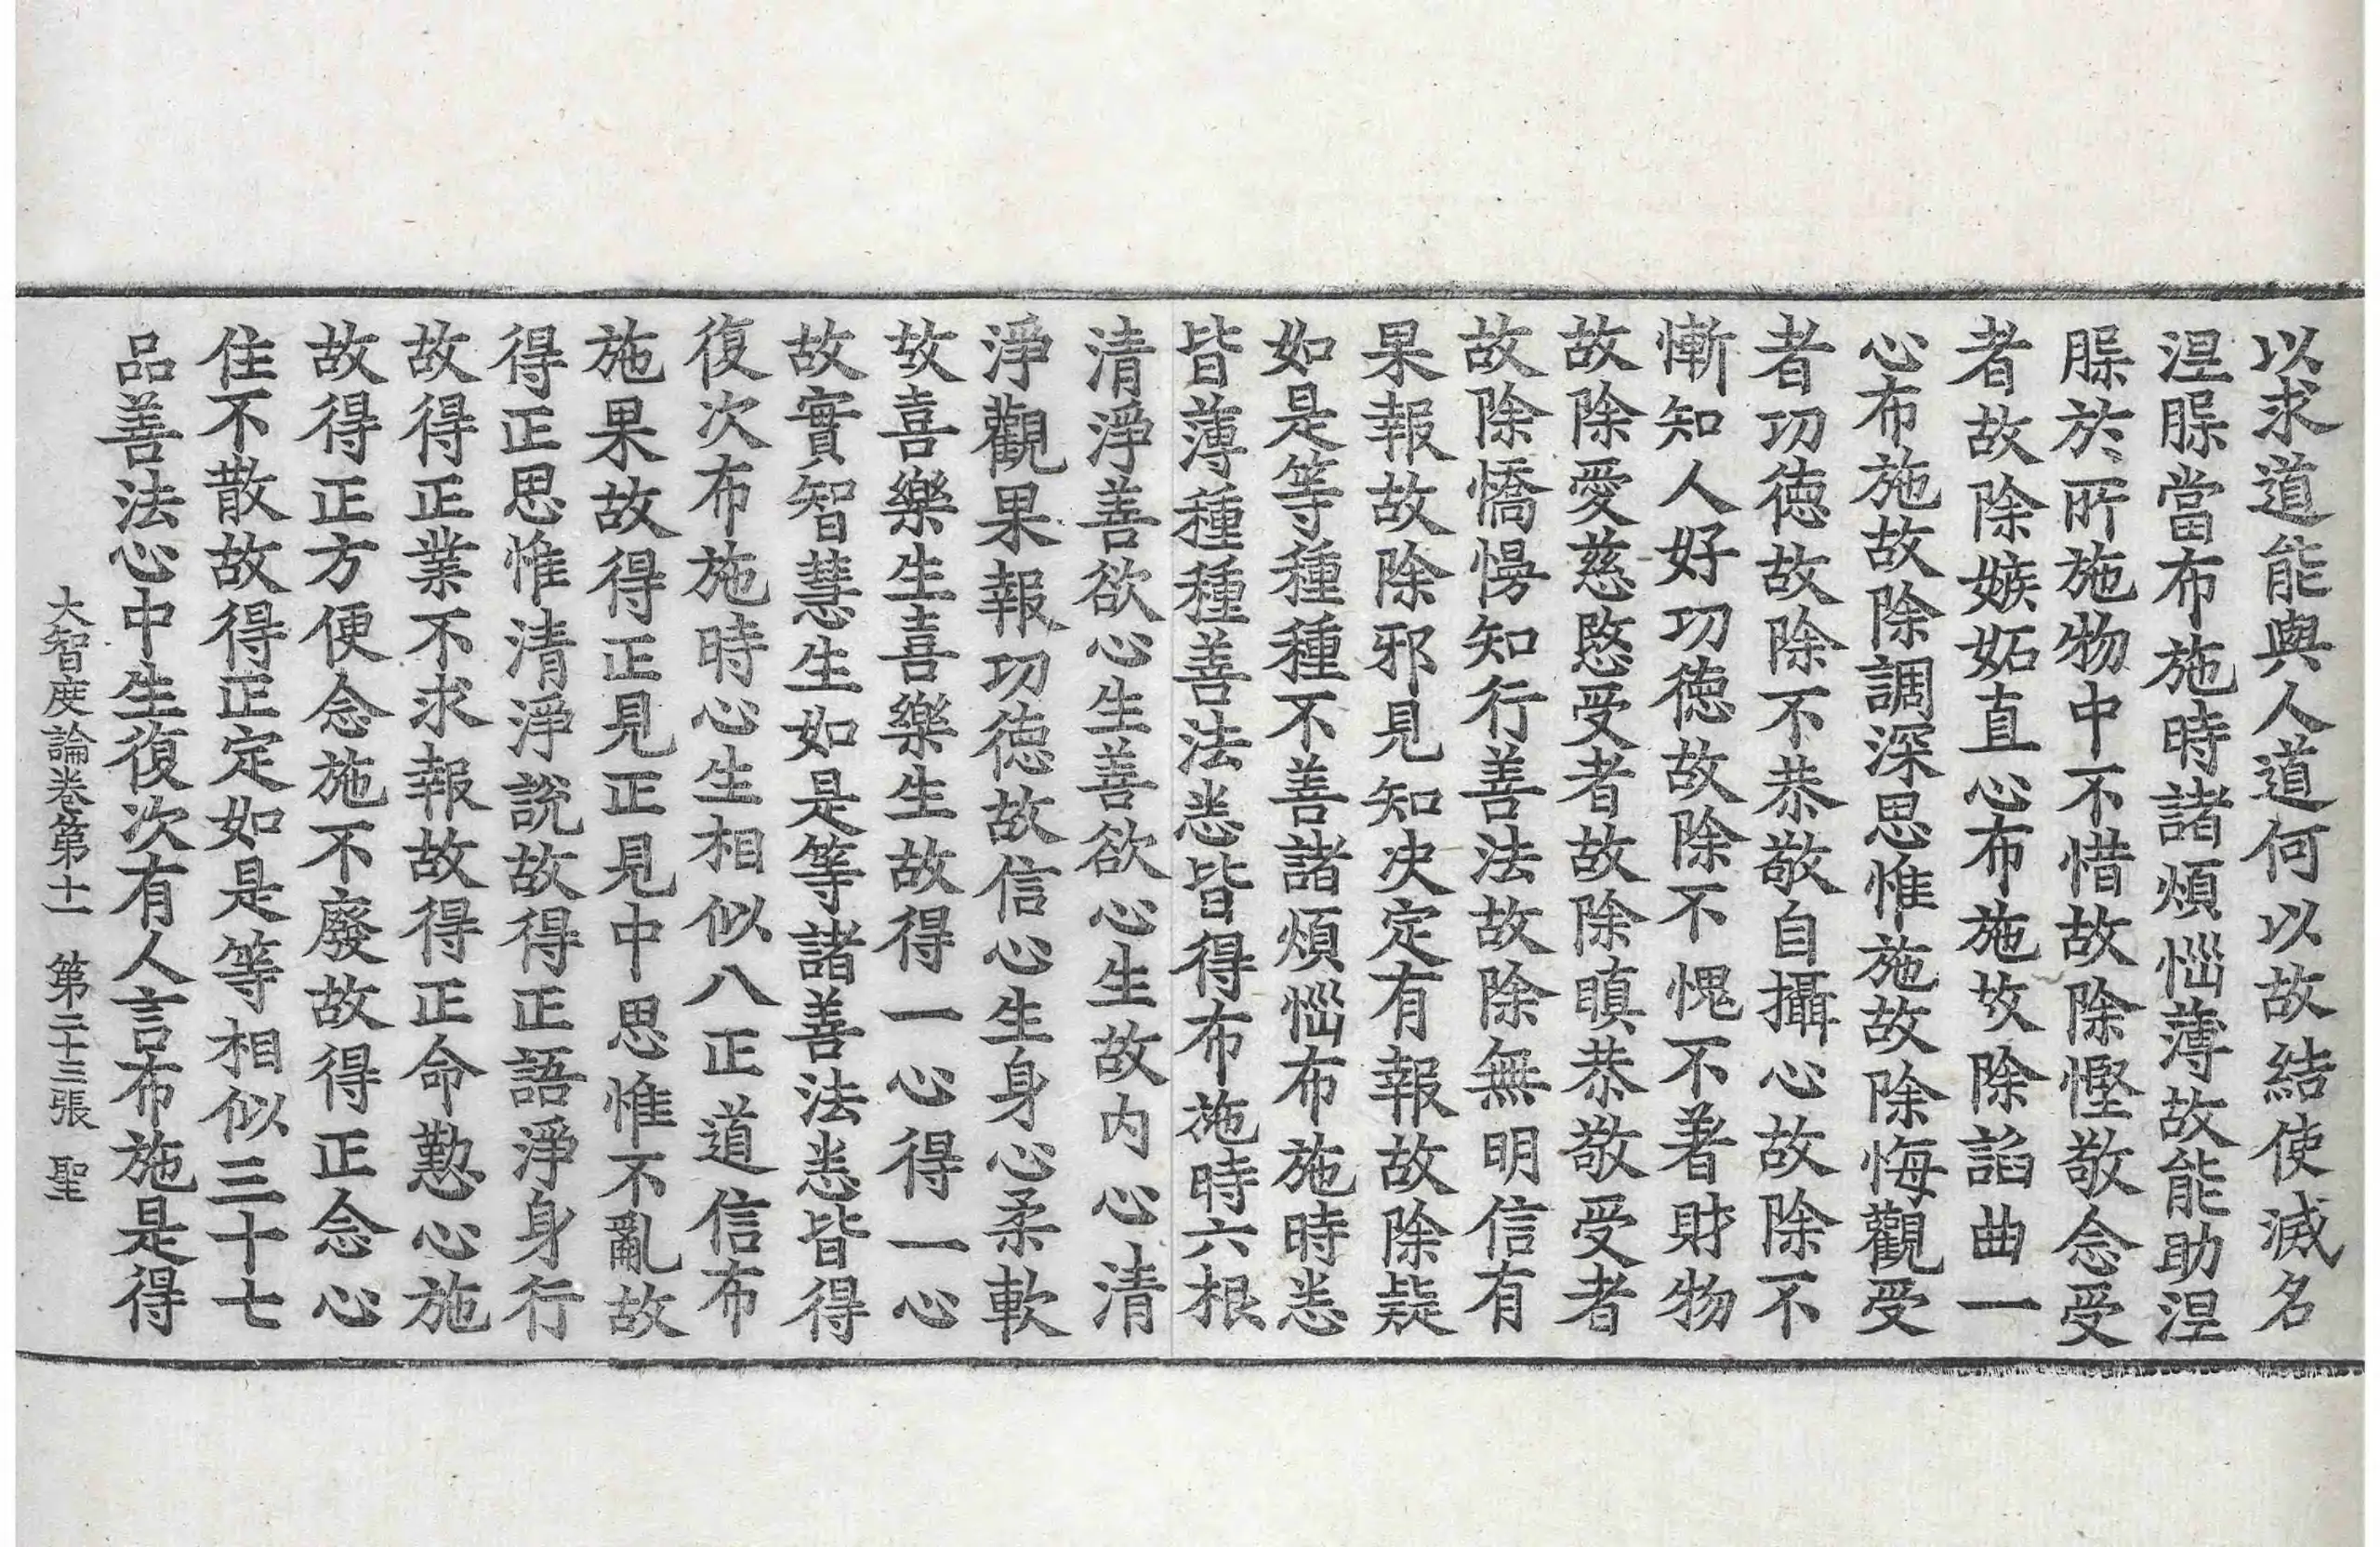 以求道能與人道何以故結使滅名
涅槃當布施時諸煩惱薄故能助涅
槃於所施物中不惜故除慳敬念受
者故除嫉妬直心布施故除諂曲一
心布施故除調深思惟施故除悔觀受
者功德故除不恭敬自攝心故除不
慚知人好功德故除不愧不著財物
故除愛慈愍受者故除瞋恭敬受者
故除憍慢知行善法故除無明信有
果報故除邪見知決定有報故除疑
如是等種種不善諸煩惱布施時悉
皆薄種種善法悉皆得布施時六根
清淨善欲心生善欲心生故內心清
淨觀果報功德故信心生身心柔軟
故喜樂生喜樂生故得一心得一心
故實智慧生如是等諸善法悉皆得
復次布施時心生相似八正道信布
施果故得正見正見中思惟不亂故
得正思惟清淨說故得正語淨身行
故得正業不求報故得正命懃心施
故得正方便念施不廢故得正念心
住不散故得正定如是等相似三十七
品善法心中生復次有人言布施是得
大智度論卷第十一 第二十三張 聖